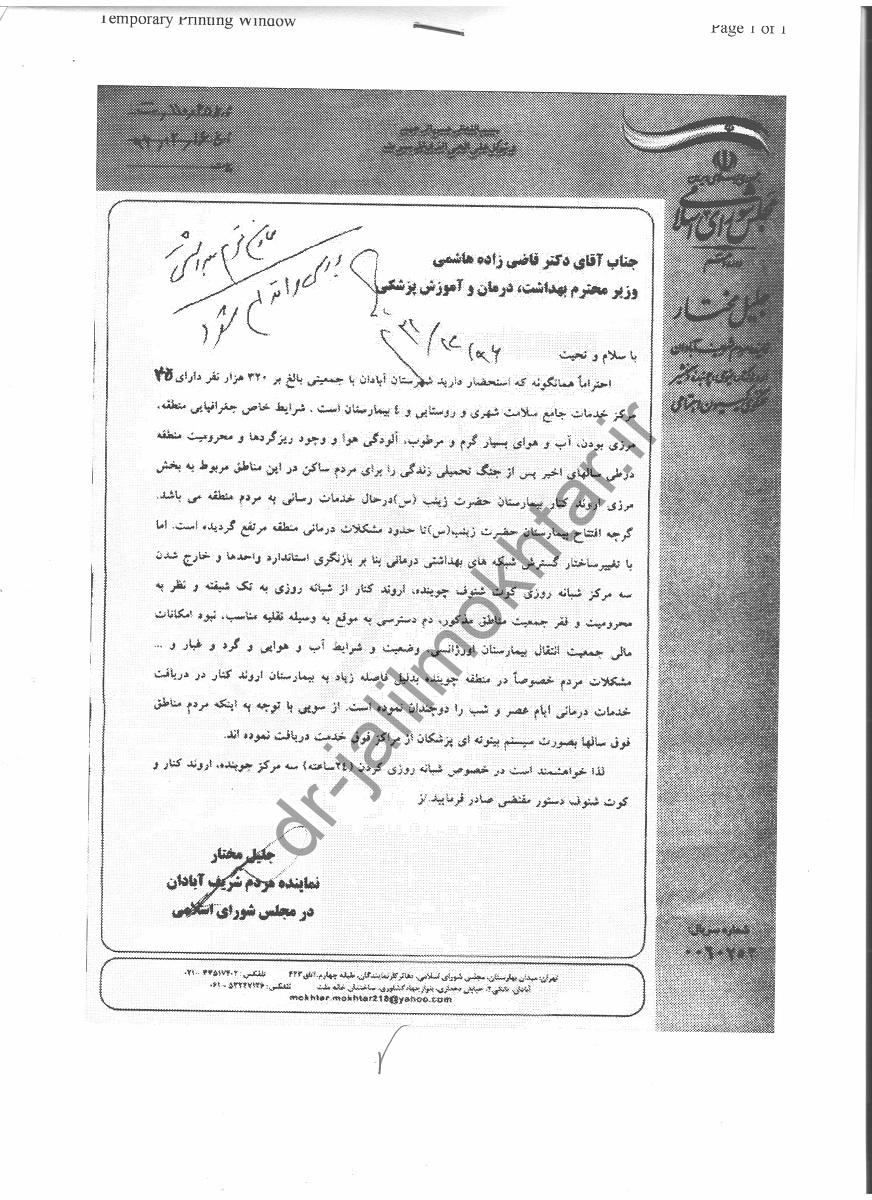 Temporary Printing Window
Page 1 of 1
مجلس شورای اسلامی
جلیل مختار
جناب آقای دکتر قاضی زاده هاشمی
وزیر محترم بهداشت، درمان و آموزش پزشکی
بررسی و اقدام شود
با سلام و تحیت
احتراماً همانگونه که استحضار دارید شهرستان آبادان با جمعیتی بالغ بر ۳۲۰ هزار نفر دارای
مرکز خدمات جامع سلامت شهری و روستایی و ٤ بیمارستان است . شرایط خاص جغرافیایی منطقه،
مرزی بودن، آب و هوای بسیار گرم و مرطوب، آلودگی هوا و وجود ریزگردها و محرومیت منطقه
درطی سالهای اخیر پس از جنگ تحمیلی زندگی را برای مردم ساکن در این مناطق مربوط به بخش
مرزی اروند کنار بیمارستان حضرت زینب (س)درحال خدمات رسانی به مردم منطقه می باشد.
گرچه افتتاح بیمارستان حضرت زینب(س)تا حدود مشکلات درمانی منطقه مرتفع گردیده است. اما
با تغییرساختار گسترش شبکه های بهداشتی درمانی بنا بر بازنگری استاندارد واحدها و خارج شدن
سه مرکز شبانه روزی کوت شنوف چوبنده، اروند کنار از شبانه روزی به تک شیفته و نظر به
محرومیت و فقر جمعیت مناطق مذکور، دم دسترسی به موقع به وسیله نقلیه مناسب، نبود امکانات
مالی جمعیت انتقال بیمارستان اورژانسی وضعیت و شرایط آب و هوایی و گرد و غبار و ...
مشکلات مردم خصوصاً در منطقه چوبنده بدلیل فاصله زیاد به بیمارستان اروند کنار در دریافت
خدمات درمانی ایام عصر و شب را دوچندان نموده است. از سویی با توجه به اینکه مردم مناطق
فوق سالها بصورت سیستم بیتوته ای پزشکان از مراکز فوق خدمت دریافت نموده اند.
لذا خواهشمند است در خصوص شبانه روزی کردن (٢٤ساعته) سه مرکز چوبنده، اروند کنار و
کوت شنوف دستور مقتضی صادر فرمایید./ز
جلیل مختار
نماینده مردم شریف آبادان
در مجلس شورای اسلامی
شماره سریال:
۰۰۶۰۷۵۳
تهران: میدان بهارستان، مجلس شورای اسلامی، دفاتر کار نمایندگان، طبقه چهارم، اتاق ۴۲۳
mokhtar.mokhtar218@yahoo.com
dr-jalilmokhtar.ir